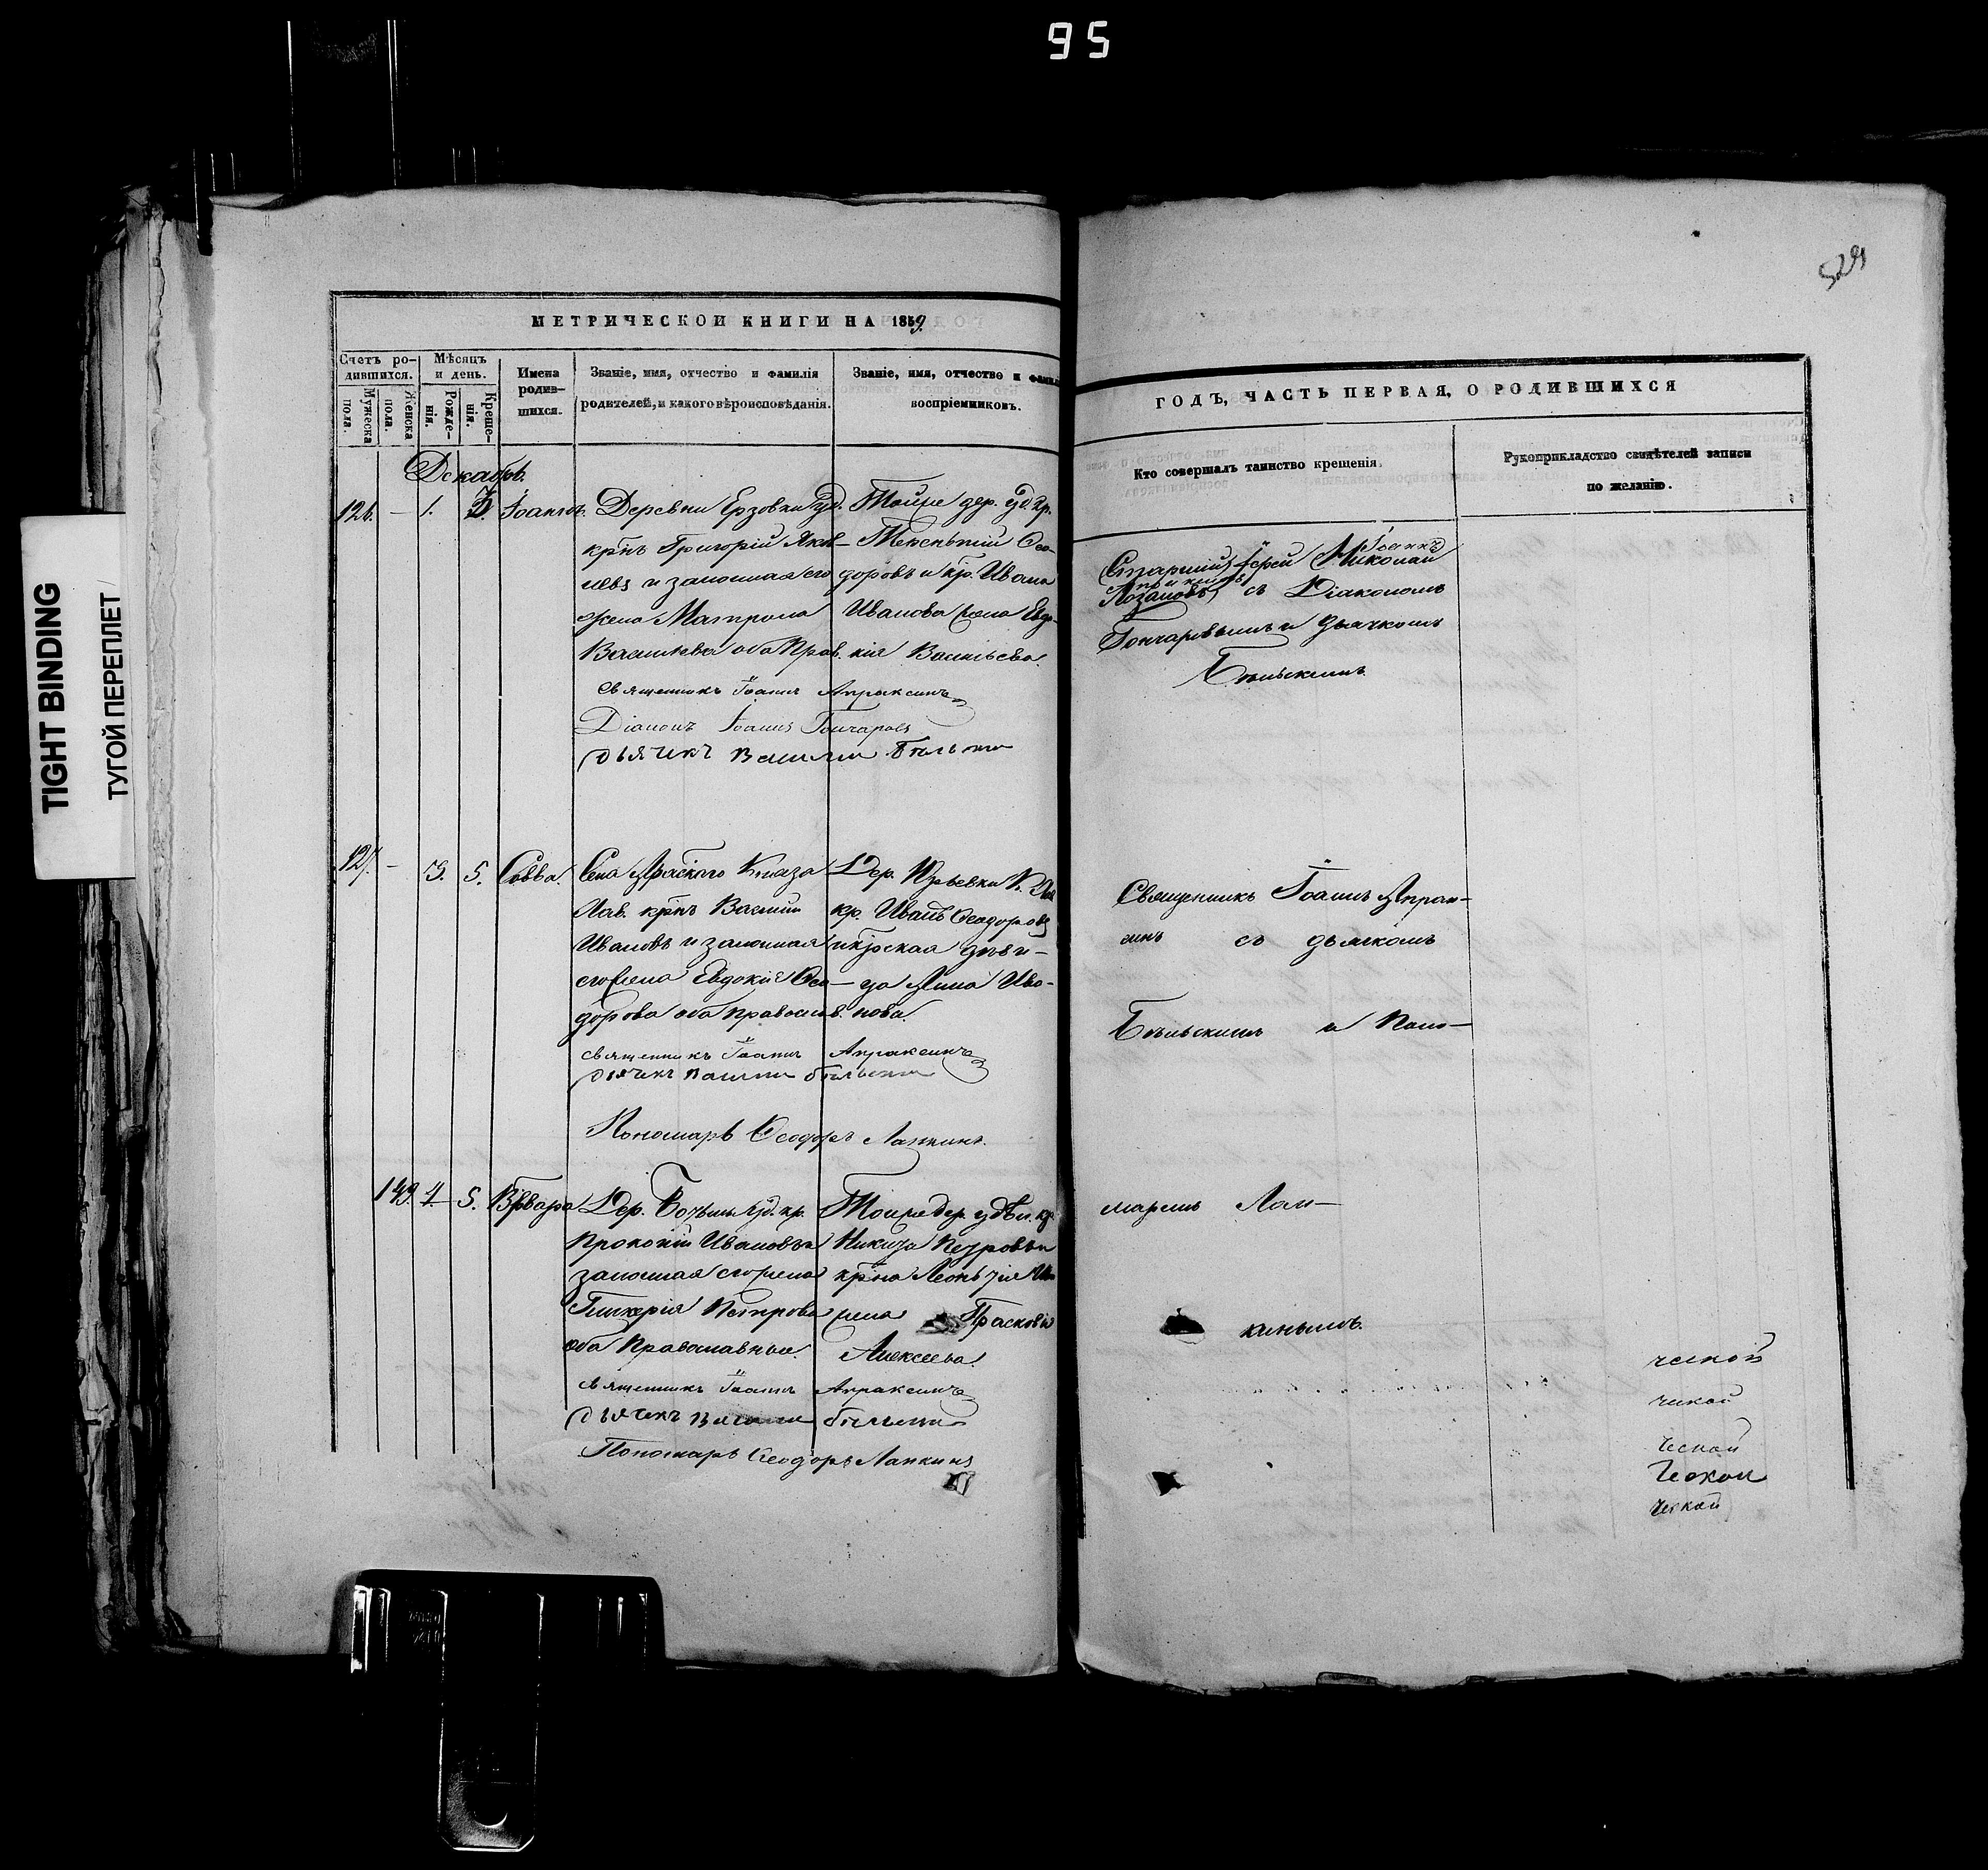 95
TIGHT BINDING
ТУГОЙ ПЕРЕПЛЕТ
МЕТРИЧЕСКОЙ КНИГИ НА 1859.
Счетъ ро-
дившихся.
Мужеска
пола.
Женска
пола.
Мѣсяцъ
и день.
Рожде-
нія.
Креще-
нія.
Имена
родив-
шихся.
Званіе, имя, отчество и фамилія
родителей, и какого вѣроисповѣданія.
Званіе, имя, отчество и фамил
воспріемниковъ.
Декабрь.
126. – 1. 3. Іоаннъ.
Деревни Ерзовки уд.
крнъ Григорій Яков-
левъ и законная его
жена Матрона
Васильева оба Прав.
Тойже дер. уд. кр.
Ѳео-
доровъ и кр. Ивана
Иванова жена Евдо-
кія Васильева.
Священникъ Іоаннъ Апраксинъ
Діаконъ Іоаннъ Гончаровъ
Дьячекъ Василій Бѣльскій
127. – 3. 5. Савва.
Села Князя
Лав. крнъ Василій
Ивановъ и законная
его жена Евдокія Ѳео-
дорова оба православ.
Дер.
кр. Иванъ Ѳеодоровъ
и крская дѣви-
ца Анна Ива-
нова.
Священникъ Іоаннъ Апраксинъ
Дьячекъ Василій Бѣльскій
Пономарь Ѳеодоръ Лапкинъ.
149. 4. 5. Варвара
Дер. уд. кр.
Прокопій Ивановъ и
законная его жена
Гликерія Петрова
оба Православные.
Тойже дер. удѣл. кр.
Никита Петровъ и
крна Леонтія
жена Прасковья
Алексѣева.
Священникъ Іоаннъ Апраксинъ
Дьячекъ Василій Бѣльскій
Пономарь Ѳеодоръ Лапкинъ
529
ГОДЪ, ЧАСТЬ ПЕРВАЯ, О РОДИВШИХСЯ
Кто совершалъ таинство крещенія.
Рукоприкладство свидѣтелей записи
по желанію.
Іоаннъ
Старшій Іерей Николай
съ Діакономъ
Гончаровымъ и дьячкомъ
Бѣльскимъ.
Священникъ Іоаннъ Апрак-
синъ съ дьячкомъ
Бѣльскимъ и Поно-
маремъ Лап-
кинымъ.
ческой
ческой
ческой
ческой